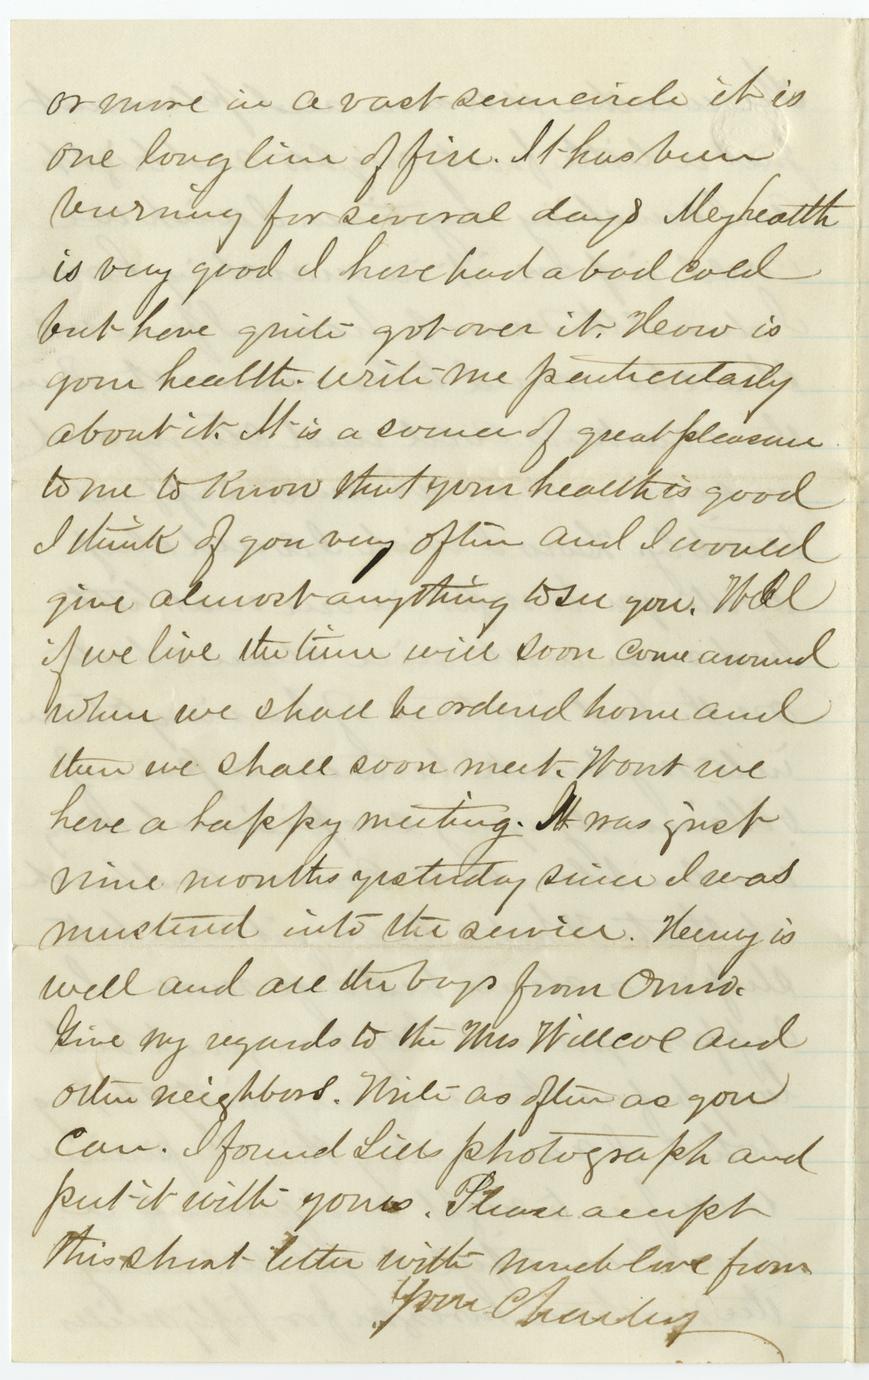 or more in a vast semicircle it is
one long line of fire. It has been
burning for several days My health
is very good I have had a bad cold
but have quite got over it. How is
your health. write me particularly
about it. It is a source of great pleasure
to me to know that your health is good
I think of you very often and I would
give almost anything to see you. Well
if we live the time will soon come around
when we shall be ordered home and
then we shall soon meet. Wont we
have a happy meeting. It was just
nine months yesterday since I was
mustered into the service. Henry is
well and all the boys from Orono.
Give my regards to the Mrs and
other neighbors. Write as often as you
can. I found Lills photograph and
put it with yours. Please accept
this short letter with much love from
Your Charley